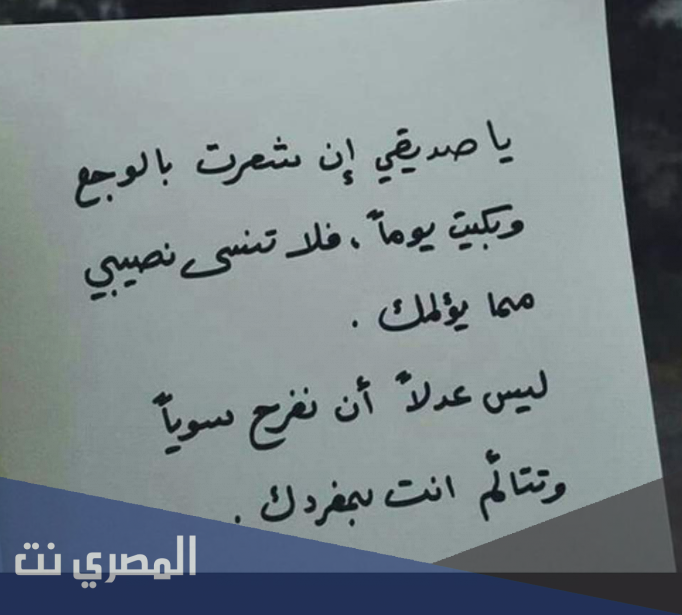 يا صديقي إن شعرت بالوجع
وبكيت يوماً ، فلا تنسى نصيبي
مما يؤلمك .
ليس عدلاً أن نفرح سوياً
وتتألّم انت بمفردك .
المصري نت